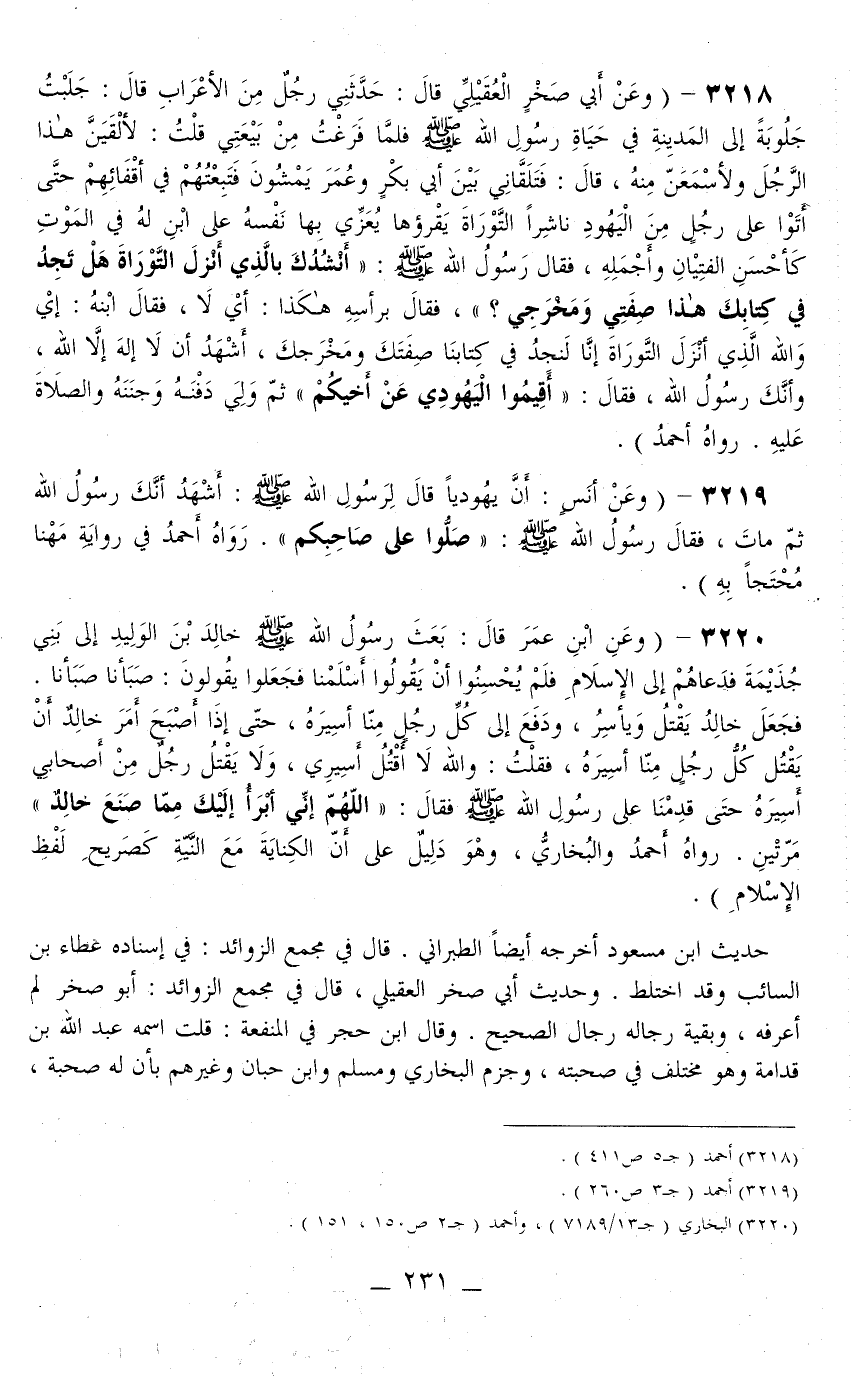 ٣٢١٨ – ( وعَنْ أَبي صَخْرٍ الْعُقَيْلِيِّ قالَ : حَدَّثَنِي رجُلٌ مِنَ الأعْرَابِ قالَ : جَلَبْتُ
جَلُوبَةً إلى المَدينةِ في حَيَاةِ رسُولِ الله ﷺ فلمَّا فَرَغْتُ مِنْ بَيْعَتِي قلْتُ : لألْقَيَنَّ هٰذا
الرَّجُلَ ولأسْمَعَنّ مِنهُ ، قالَ : فَتَلَقَّانِي بَيْنَ أبي بكْرٍ وعُمَرَ يَمْشُونَ فَتَبِعْتُهُمْ في أقْفَائِهِمْ حتَّى
أَتَوْا على رجُلٍ مِنَ الْيَهُودِ ناشِراً التَّوْرَاةَ يَقْرؤها يُعَزِّي بِها نَفْسهُ على ابْنٍ لهُ في المَوْتِ
كَأحْسَنِ الفتِيْانِ وأجْمَلِهِ ، فقال رَسُولُ الله ﷺ : « أَنْشُدُكَ بالَّذِي أَنْزلَ التَّوْرَاةَ هَلْ تَجِدُ
في كِتابِكَ هٰذا صِفَتِي وَمَخْرَجِي ؟ » ، فقالَ برأسِهِ هٰكَذا : أيْ لَا ، فقالَ ابْنهُ : إيْ
وَالله الَّذِي أنْزَلَ التَّورَاةَ إنَّا لَنجدُ في كِتابنَا صِفَتَكَ ومَخْرَجكَ ، أشْهَدُ أن لَا إلهَ إلَّا الله ،
وأنَّكَ رسُولُ الله ، فقالَ : « أَقِيمُوا الْيَهُودِي عَنْ أَخيكُمْ » ثمّ وَلِيَ دَفْنَهُ وَجَنَنَهُ والصلَاةَ
عَليهِ . رواهُ أحمدُ ) .
٣٢١٩ – ( وعَنْ أنَسٍ : أَنَّ يهُودياً قالَ لِرَسُولِ الله ﷺ : أَشْهَدُ أنَّكَ رسُولُ الله
ثمّ ماتَ ، فقالَ رسُولُ الله ﷺ : « صَلُّوا على صَاحِبِكم » . رَوَاهُ أَحمدُ في روايَةِ مَهْنا
مُحْتَجاً بِهِ ) .
٣٢٢٠ – ( وعَنِ ابْنِ عمَرَ قالَ : بَعَثَ رسُولُ الله ﷺ خالِدَ بْنَ الوَلِيدِ إلى بَنِي
جُذَيْمَةَ فدَعاهُمْ إلى الإِسلَامِ فلَمْ يُحْسِنُوا أنْ يَقُولُوا أَسْلَمْنا فجَعَلوا يقُولونَ : صَبَأنا صَبَأنا .
فجَعَلَ خالِدُ يَقْتلُ وَيأسرُ ، ودَفَعَ إلى كُلِّ رجُلٍ مِنّا أسيرَهُ ، حتّى إذَا أصْبَحَ أمَرَ خالِدٌ أَنْ
يَقْتُل كُلُّ رجلٍ مِنّا أسيرَهُ ، فقلْتُ : والله لَا أَقْتُلُ أَسِيرِي ، وَلَا يَقْتلُ رجُلٌ مِنْ أَصحابي
أَسِيرَهُ حتَى قدِمْنَا على رسُولِ الله ﷺ فقالَ : « اللّهُمّ إنِّي أَبْرَأُ إِلَيْكَ مِمّا صنَعَ خالِدٌ »
مَرّتْينِ . رواهُ أحمدُ والبُخاريُّ ، وهْوَ دَلِيلٌ على أنّ الكِنايَةَ مَعَ النِّيَّةِ كَصَريحِ لَفْظِ
الإِسْلامِ ) .
حديث ابن مسعود أخرجه أيضاً الطبراني . قال في مجمع الزوائد : في إسناده عطاء بن
السائب وقد اختلط . وحديث أبي صخر العقيلي ، قال في مجمع الزوائد : أبو صخر لم
أعرفه ، وبقية رجاله رجال الصحيح . وقال ابن حجر في المنفعة : قلت اسمه عبد الله بن
قدامة وهو مختلف في صحبته ، وجزم البخاري ومسلم وابن حبان وغيرهم بأن له صحبة ،
(٣٢١٨) أحمد ( جـ٥ ص٤١١ ) .
(٣٢١٩) أحمد ( جـ٣ ص٢٦٠ ) .
(٣٢٢٠) البخاري ( جـ٧١٨٩/١٣ ) ، وأحمد ( جـ٢ ص١٥٠ ، ١٥١ ) .
– ٢٣١ –